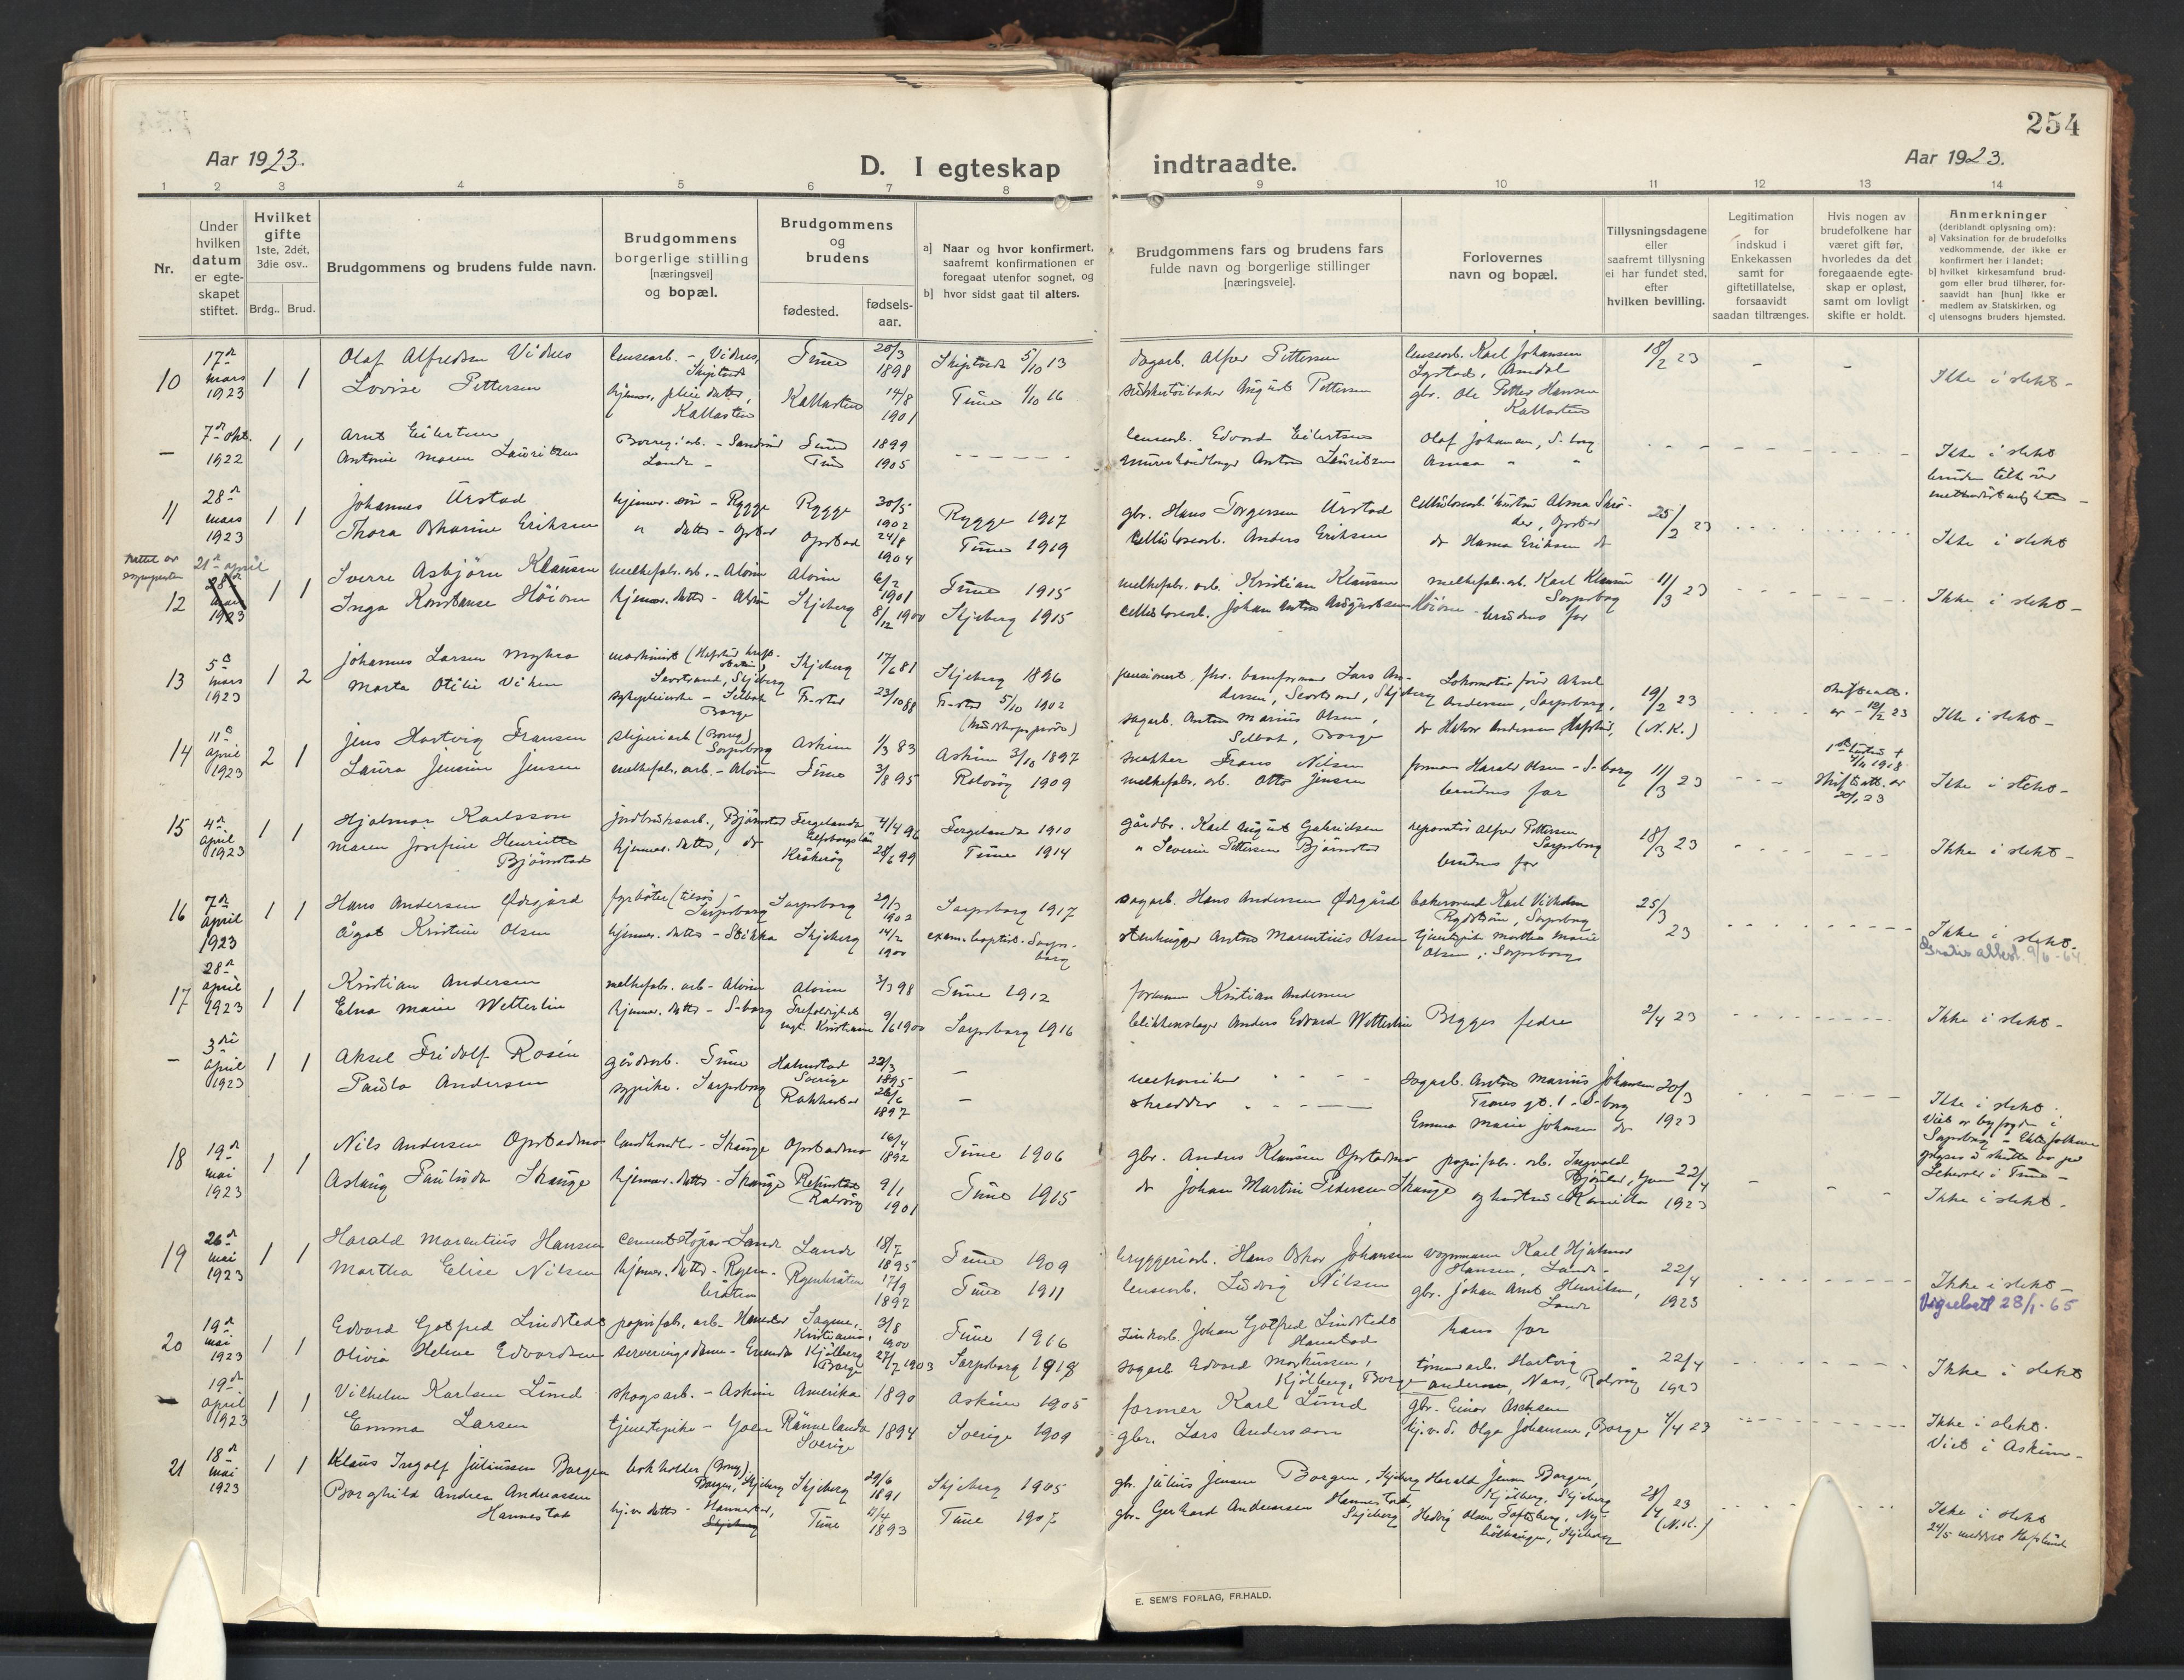 254
Aar 1923.
D. I egteskap
indtraadte.
Aar 1923.
1 2 3 4 5 6 7 8 9 10 11 12 13 14
Nr.
Under
hvilken
datum
er egte-
skapet
stiftet.
Hvilket
gifte
1ste, 2det,
3die osv..
Brdg.. Brud.
Brudgommens og brudens fulde navn.
Brudgommens
borgerlige stilling
[næringsvei]
og bopæl.
Brudgommens
og
brudens
fødested.
fødsels-
aar.
a] Naar og hvor konfirmert,
saafremt konfirmationen er
foregaat utenfor sognet, og
b] hvor sidst gaat til alters.
Brudgommens fars og brudens fars
fulde navn og borgerlige stillinger
[næringsveie].
Forlovernes
navn og bopæl.
Tillysningsdagene
eller
saafremt tillysning
ei har fundet sted,
efter
hvilken bevilling.
Legitimation
for
indskud i
Enkekassen
samt for
giftetillatelse,
forsaavidt
saadan tiltrænges.
Hvis nogen av
brudefolkene har
været gift før,
hvorledes da det
foregaaende egte-
skap er opløst,
samt om lovligt
skifte er holdt.
Anmerkninger
(deriblandt oplysning om):
a] Vaksination for de brudefolks
vedkommende, der ikke er
konfirmert her i landet;
b] hvilket kirkesamfund brud-
gom eller brud tilhører, for-
saavidt han [hun] ikke er
medlem av Statskirken, og
c] utensogns bruders hjemsted.
10 17de mars 1923 1 1
Olaf Alfredsen Vidnes
Lovise Pettersen
lensearb. - Vidnes, Skiptvedt
hjemmev. pleiedatter, Kallasten
Tune 20/3 1898 Skiptvedt 5/10 13
Kallasten 14/8 1901 Tune 1/10 16
dagarb. Alfred Pettersen
August Pettersen
lensearb. Karl Johansen
gbr. Ole Petter Hansen
Kallasten
18/2 23
Ikke i slekt -
- 7de okt. 1922 1 1
Arnt Eilertsen
Antonie Maren Lauritsen
Borreg. arb. - Sandsund
Lande -
Tune 1899
Tune 1905
lensearb. Edvard Eilertsen
murerhåndlanger Anton Lauritsen
Olaf Johansen, S-borg
Anna " "
Ikke i slekt
11 28de mars 1923 1 1
Johannes Urstad
Thora Oskarine Eriksen
hjemmev. søn - Rygge
" datter - Opstad
Rygge 30/5 1902 Rygge 1917
Opstad 24/8 1904 Tune 1919
gbr. Hans Torgersen Urstad
cellulosearb. Anders Eriksen
do Hanna Eriksen do
25/2 23
Ikke i slekt
12 21de april 1923 1 1
Sverre Asbjørn Klausen
Inga Konstanse Höiom
melkefabr. arb. - Alvim
hjemmev. datter - Alvim
Alvim 6/2 1901 Tune 1915
Skjeberg 8/12 1900 Skjeberg 1915
melkefabr. arb. Kristian Klausen
cellulosearb. Johan Anton Augustsen Höiom
melkefabr. arb. Karl Klausen
Sarpsborg
brudens far
11/3 23
Ikke i slekt -
13 5te mars 1923 1 2
Johannes Larsen Myhra
Marta Otilie Viken
Skjeberg
sykepleierske - Selbak
Borge
Skjeberg 17/6 81 Skjeberg 1896
Fr-stad 23/10 88 Fr-stad 5/10 1902
pensionert fhv. baneformann Lars An-
dersen, Skjeberg
sagarb. Anton Marius Olsen,
Selbak, Borge
Lokomotivfører Aksel
Andersen, Sarpsborg,
do Halvor Andersen Hafslund,
19/2 23
(N.K.)
Skifteatt.
er - 10/2 23
Ikke i slekt -
14 11te april 1923 2 1
Jens Hartvig Fransen
Laura Jensine Jensen
sliperiarb (Borreg) Sarpsborg
melkefabr. arb. - Alvim
Askim 1/3 83 Askim 3/10 1897
Tune 3/8 95 Rolvsøy 1909
snekker Frans Nilsen
melkefabr. arb. Otto Jensen
formann Harald Olsen - S-borg
brudens far
11/3 23
Ikke i slekt -
15 4de april 1923 1 1
Hjalmar Karlsson
Maren Josefine Henriette
Bjørnstad
jordbruksarb., Bjørnstad
hjemmev. datter, do
Fergelanda Elfsborgs län 4/4 96 Fergelanda 1910
Kråkerøy 28/6 99 Tune 1914
gårdbr. Karl August Gabrielsen
" Severin Pettersen Bjørnstad
reparatør Alfred Pettersen
Sarpsborg
brudens far
18/3 23
Ikke i slekt -
16 7de april 1923 1 1
Hans Andersen Ødegård
Ågot Kristine Olsen
fyrbøter (tilsjøs) -
Sarpsborg
hjemmev. datter - Stikka
Sarpsborg 29/3 1902 Sarpsborg 1917
Skjeberg 14/2 1900
sagarb. Hans Andersen Ødegård
stenhugger Anton Marentius Olsen
bakersvend Karl Vilhelm
Rydstrøm, Sarpsborg
tjenestepike Martha Marie
Olsen, Sarpsborg
25/3 23
Ikke i slekt -
17 28de april 1923 1 1
Kristian Andersen
Elna Marie Wetterlin
melkefabr. arb - Alvim
hjemmev. datter - S-borg
Alvim 3/3 98 Tune 1912
Trefoldighets mgt. Kristiania 9/6 1900 Sarpsborg 1916
formann Kristian Andersen
blikkenslager Anders Edvard Wetterlin
Begges fedre
2/4 23
Ikke i slekt -
- 3die april 1923 1 1
Aksel Fridolf Rosén
Paula Andersen
gårdsarb. Tune
sypike. Sarpsborg
Halmstad Sverige 22/3 1895 -
Rakkestad 26/6 1897 -
mekaniker
skredder
sagarb. Anton Marius Johansen
Tranes gt. 1 - S-borg
Emma Marie Johansen do
20/3 1923
Ikke i slekt.
Viet av byfogden i
Sarpsborg -
18 19de mai 1923 1 1
Nils Andersen Opstadmo
Aslaug Paulinda Skauge
landhandler - Skauge
hjemmev. datter - Skauge
Opstadmo 16/4 1892 Tune 1906
Rolvsøy 9/1 1901 Tune 1915
gbr. Anders Klausen Opstadmo
do Johan Martin Pedersen Skauge
papirfabr. arb. Ingvald
22/4 1923
Ikke i slekt -
19 26de mai 1923 1 1
Harald Marentius Hansen
Martha Elise Nilsen
cementstøper - Lande
hjemmev. datter - Rygen-
bråten
Lande 18/7 1895 Tune 1909
Rygenbråten 17/9 1897 Tune 1911
bryggeriarb. Hans Oskar Johansen
lensearb. Ludvig Nilsen
vognmann Karl Hjalmar
Hansen, Lande -
gbr. Johan Arnt Henriksen,
Lande
22/4 1923
Ikke i slekt -
Vigselsatt 28/1-65
20 19de mai 1923 1 1
Edvard Gotfred Lindstedt
Olivia Helene Edvardsen
papirfabr. arb - Hannestad
serveringsdame - Grensen
Sagene, Kristiania, 3/8 1900 Tune 1916
Kjølberg Borge 27/7 1903 Sarpsborg 1918
Johan Gotfred Lindstedt
Hannestad
sagarb Edvard Markussen,
Kjølberg, Borge
hans far
tømmerarb. Hartvig
Andersen, Nes, Rolvsøy
22/4 1923
Ikke i slekt
- 19de april 1923 1 1
Vilhelm Karlsen Lund
Emma Larsen
skogsarb. - Askim
tjenestepike - Yven
Amerika 1890 Askim 1905
Rännelanda Sverige 1894 Sverige 1909
former Karl Lund
gbr. Lars Andersson
gbr. Einar Asaksen
hj.v.d. Olga Johansen, Borge
4/4 23
Ikke i slekt.
Viet i Askim -
21 18de mai 1923 1 1
Klaus Ingolf Juliussen Borgen
Borghild Andrea Andreassen
Hannestad
bokholder (Borreg),
Borgen, Skjeberg
hj.v. datter - Hannestad,
Skjeberg
Skjeberg 29/6 1891 Skjeberg 1905
Tune 11/4 1893 Tune 1907
gbr. Julius Jensen Borgen, Skjeberg
gbr. Gerhard Andreassen Hannestad,
Skjeberg
Harald Jensen Borgen,
Kjølberg, Skjeberg
Hedvig Olsen Toftsberg,
Skjeberg
28/4 23
(N.K.)
Ikke i slekt
24/5 meddelt Hafslund
E. SEM'S FORLAG, FR.HALD.